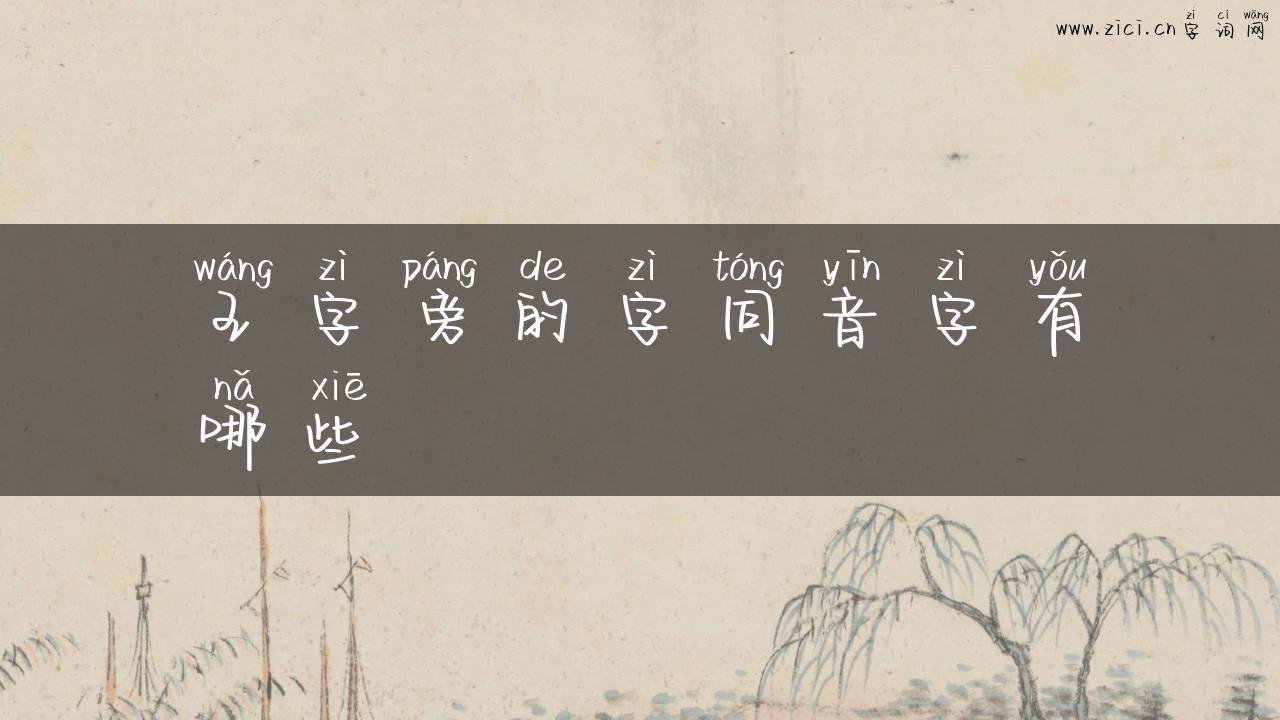 zì cí wǎng
www.zici.cn 字词网
wáng zì páng de zì tóng yīn zì yǒu
王字旁的字同音字有
nǎ xiē
哪些